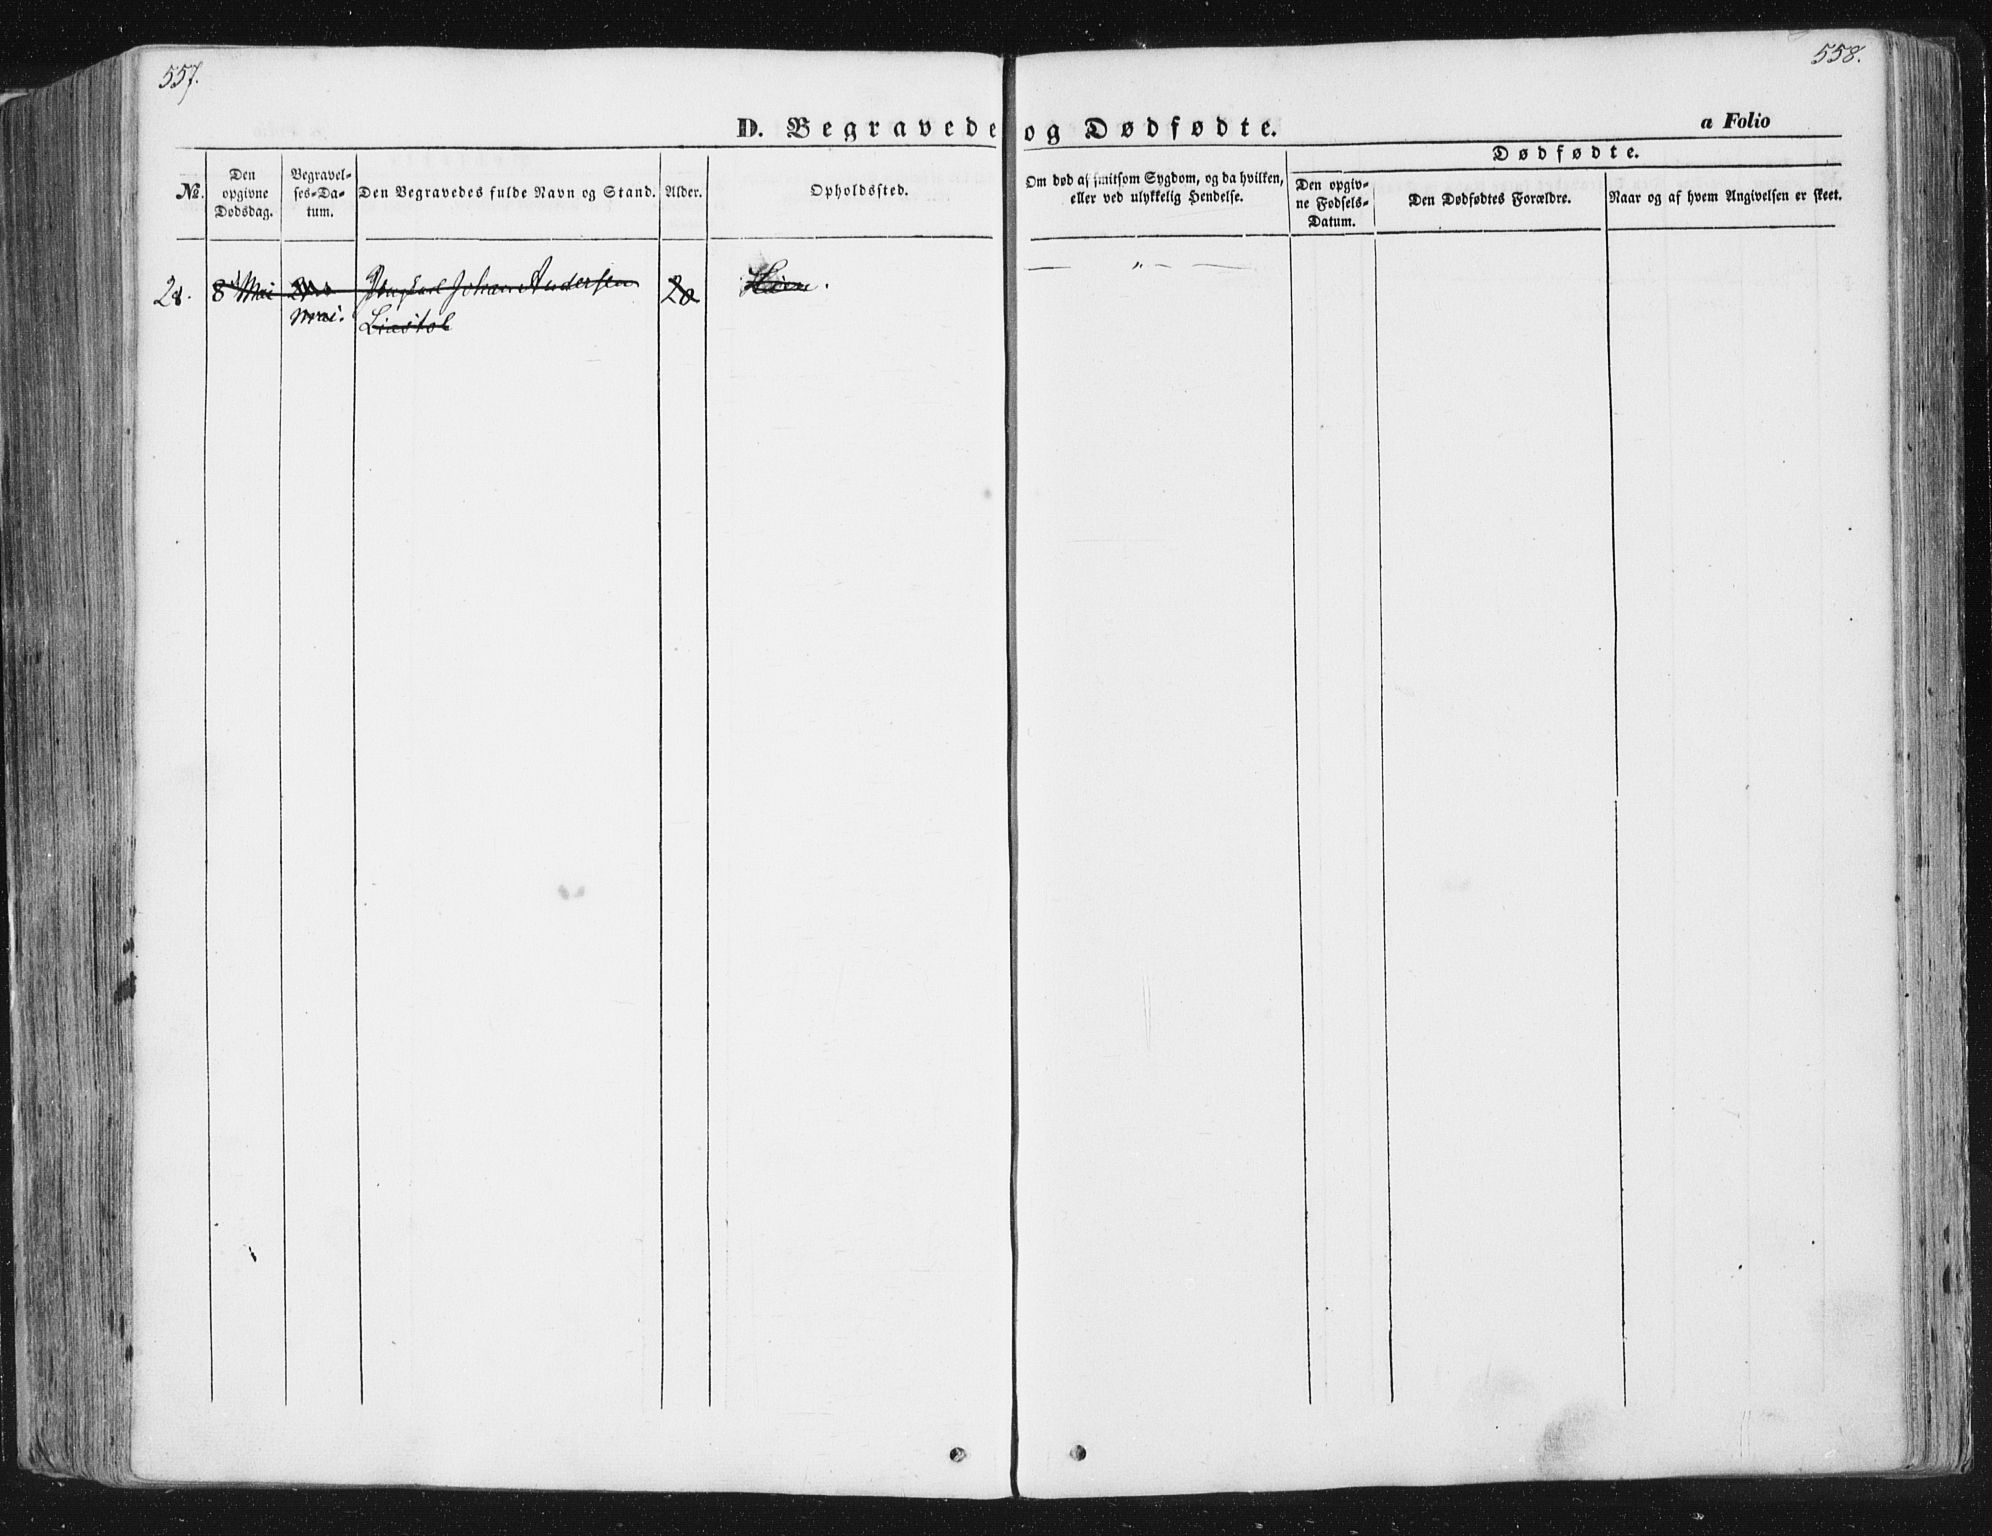 557.
558.
D. Begravede og Dødfødte.
a Folio
No.
Den opgivne Dødsdag.
Begravelses-Datum.
Den Begravedes fulde Navn og Stand.
Alder.
Opholdssted.
Om død af smitsom Sygdom, og da hvilken, eller ved ulykkelig Hendelse.
Dødfødte.
Den opgivne Fødsels-Datum.
Den Dødfødtes Forældre.
Naar og af hvem Angivelsen er skeet.
28. 8 Mai Johan Andersen — " —
Mai. Liastøl